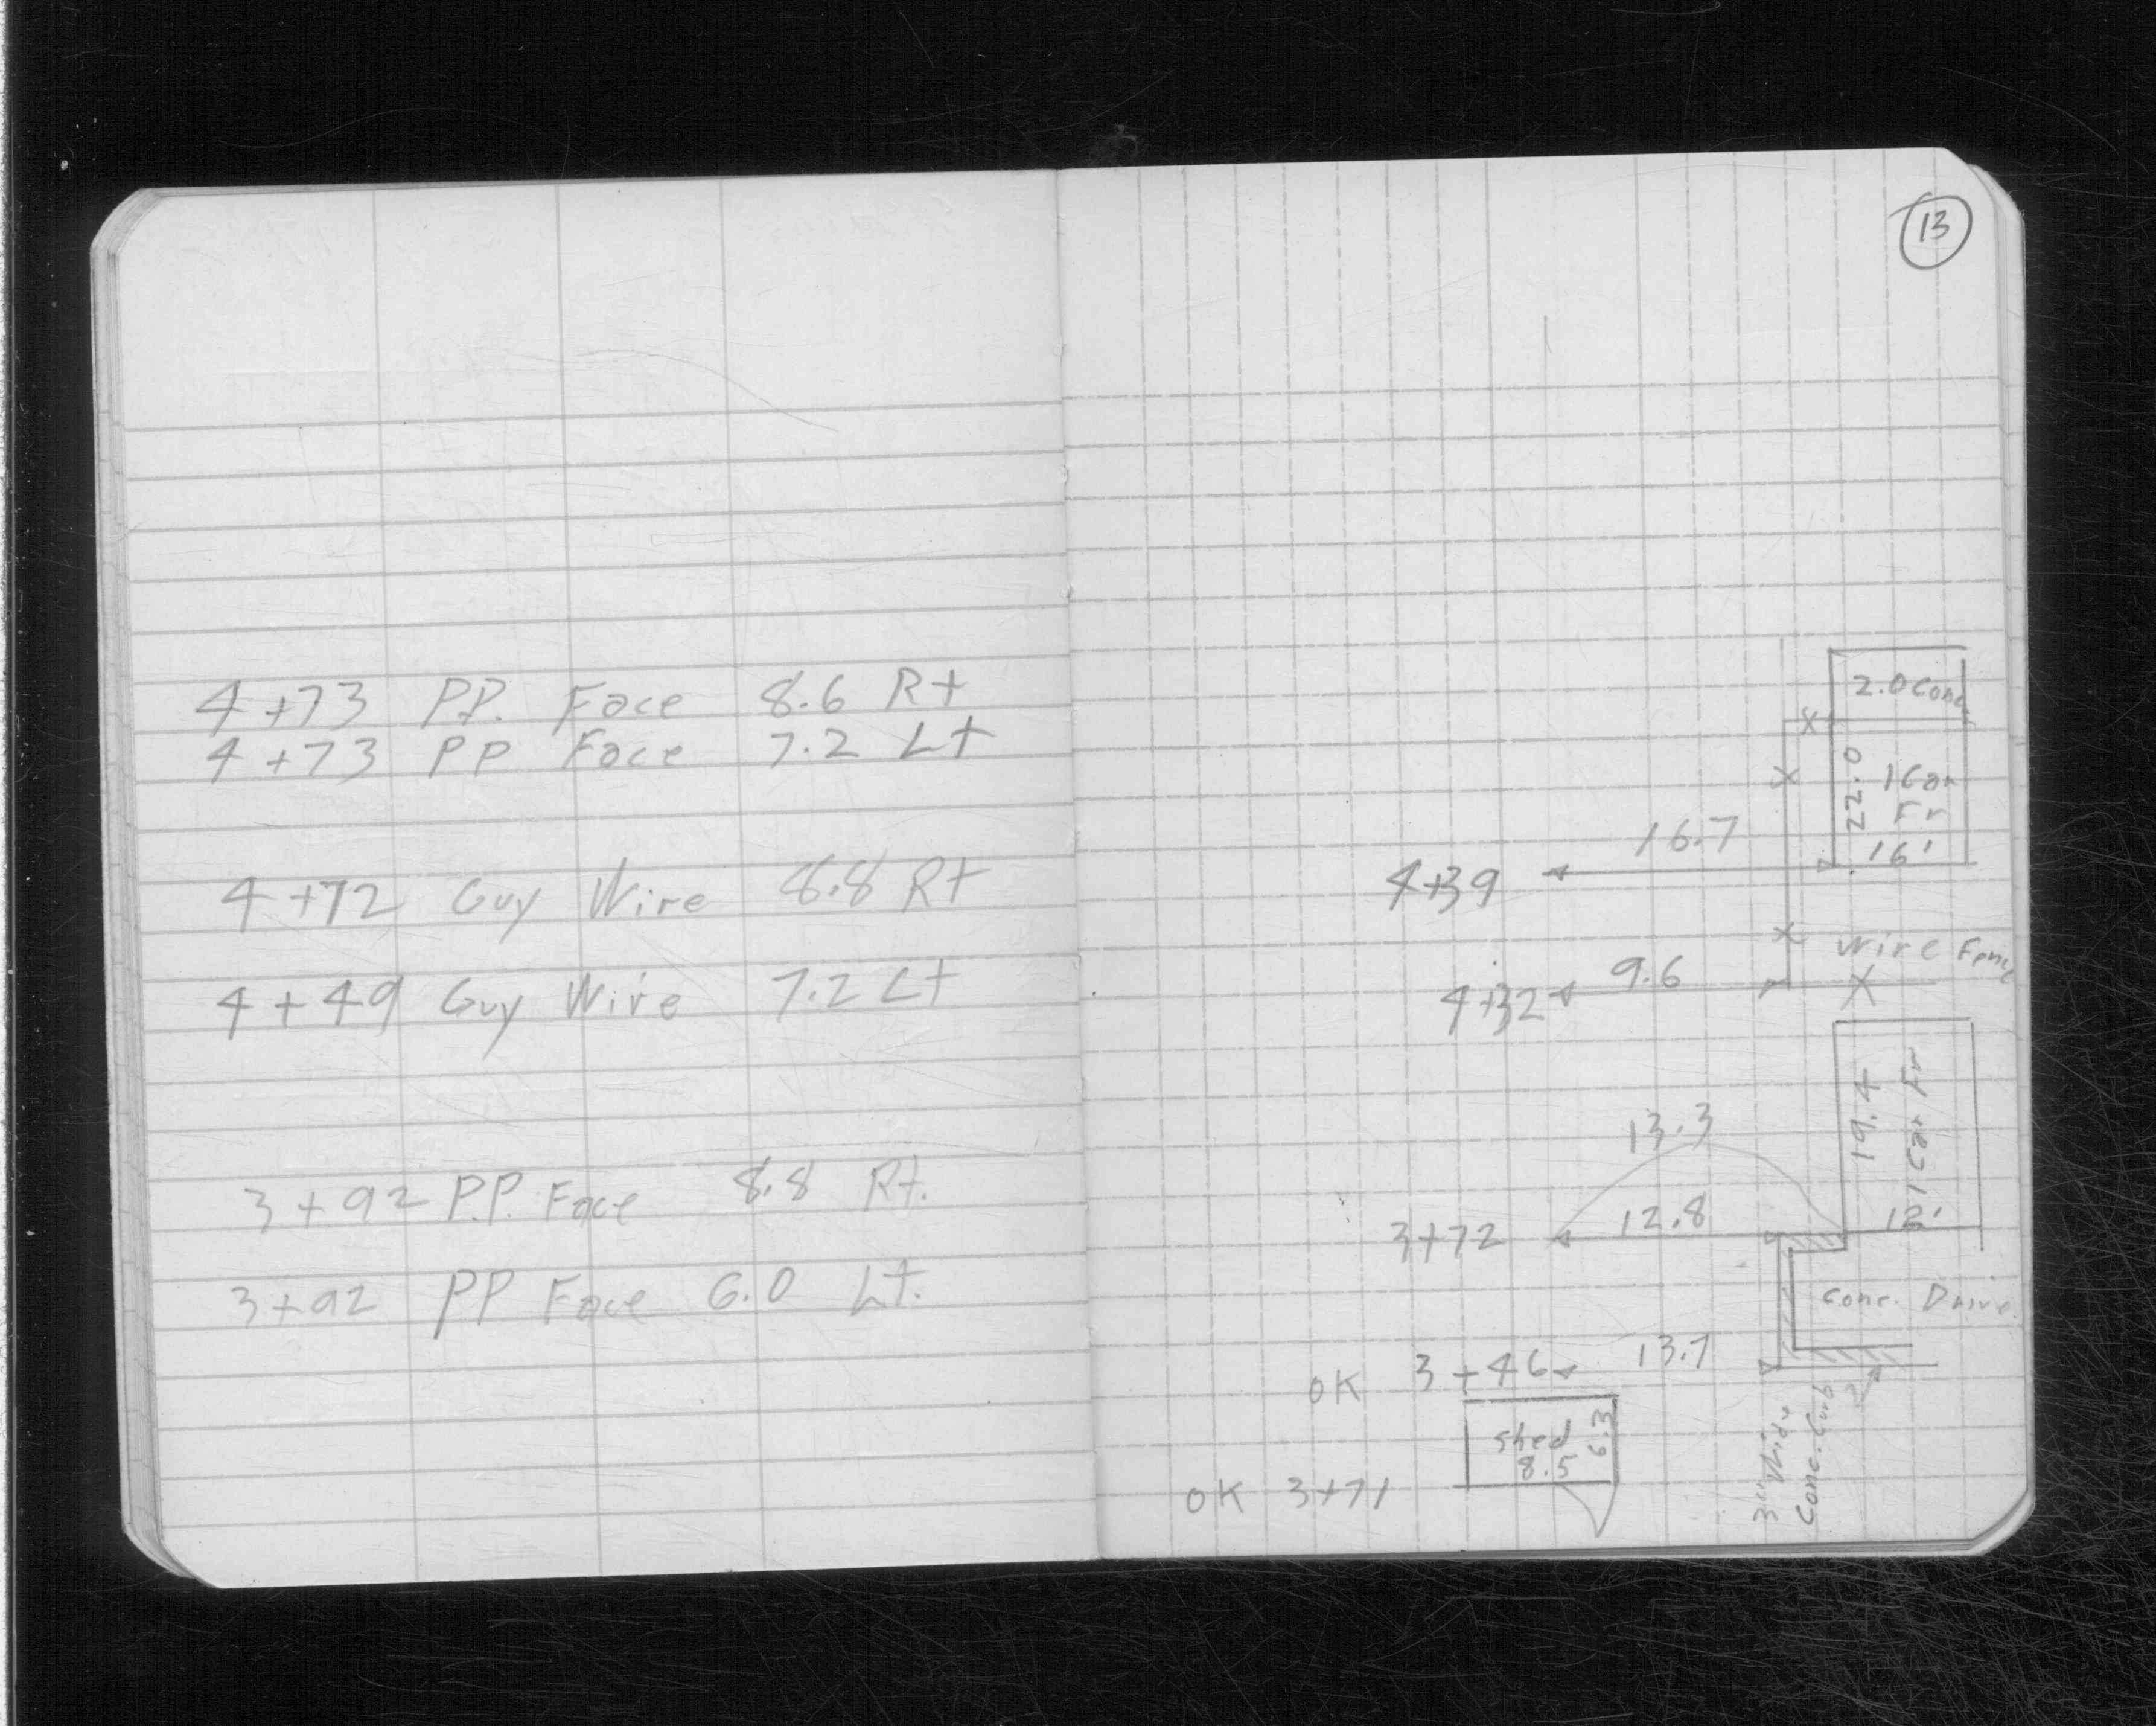 4+73 P.P. Face 8.6 Rt
4+73 PP Face 7.2 Lt
4+72 Guy Wire 8.8 Rt
4+49 Guy Wire 7.2 Lt
3+92 P.P. Face 8.8 Rt.
3+92 PP Face 6.0 Lt.
13
2.0 Conc
22.0
1 Car
Fr
16'
16.7
4+39
Wire Fence
9.6
4+32
19.4
1 Car Fr
12'
13.3
12.8
3+72
Conc. Drive
OK 3+46 13.7
Shed
8.5
6.3
OK 3+71
3" Wide
Conc. Curb